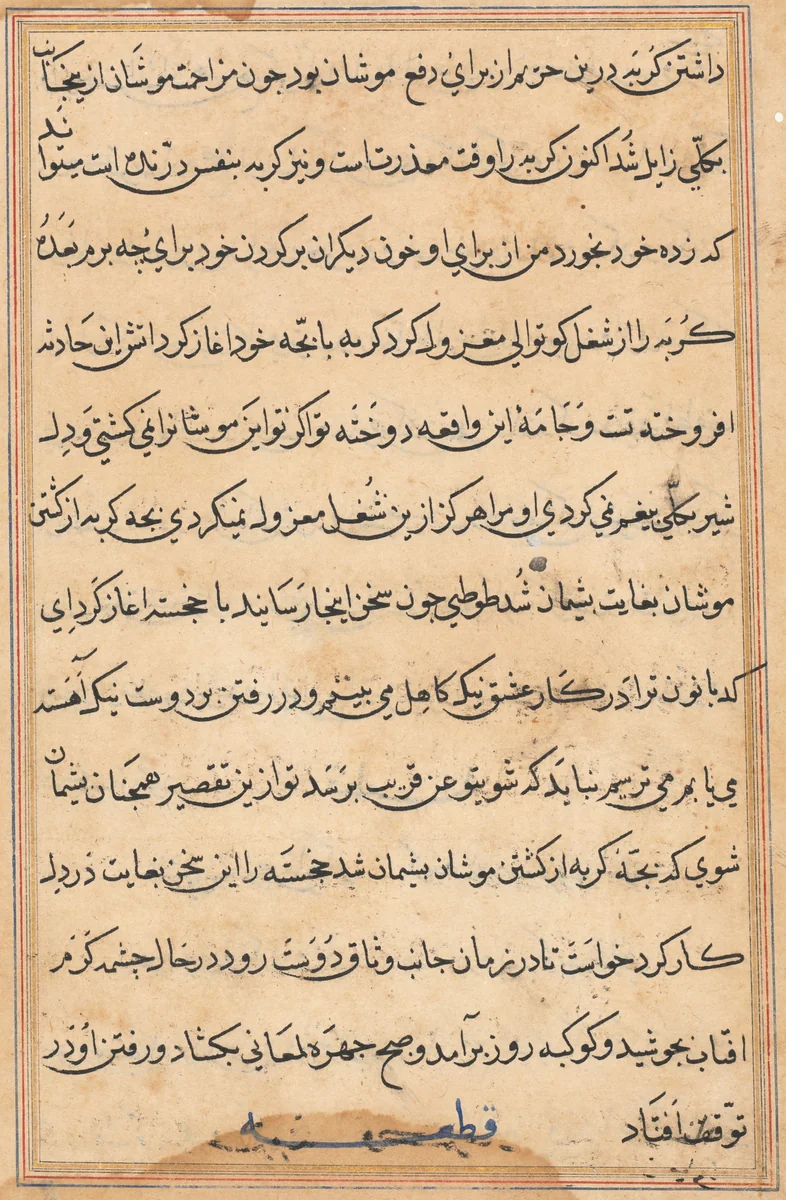 داشتن کربه درین حریم از برای دفع موشان بود جون مزاحمت موشان ازینجانب
بکلّي زایل شُد اکنون کربه را وقت معذرتست و نیز کربه بنفس درّنده است میتواند
که زده خود نخورد من از برای او خون دیکران بر کردن خود برای چه برم بَعَدُه
کُربَه را از شغل کوتوالي معزول کرد کربه با بچّه خود اغاز کرد اتش این حَادثه
افروخته تست وَجَامَهٔ این واقعه دوخَته تو اکر تو این موشانرا نمي کشتي وَدِل
شیر بکلّي بیغم نمي کردي او مرا هرکز ازین شُغل معزول نمیکردي بچه کربه از کشتن
موشان بغایت بشیمان شُد طوطي جون سخن اینجا رسَانید با خجسته اغاز کَرد اِي
کدبانو من ترا دَر کَار عشق نیک کاهِل مي بینم و در رفتن بر دوست نیک آهَسته
مي یابم مي ترسم نبایَد که شوي تو عن قریب برَسَد تو ازین تقصیر همجَنان بشیمان
شوي که بچّهٔ کربه از کشتن موشان بشیمان شد خجستَه را این سخن بغایت دَر دِل
کار کرد خواسَت تا در زمان جانب وثاق دُوسَت رود در حَال جشمه کَرم
افتاب بجوشید و کوکبه روز برآمد و صبح جهرَه لمعَاني بکشاد و رفتن اُو دَر
توّقف اَفتَاد قطعه